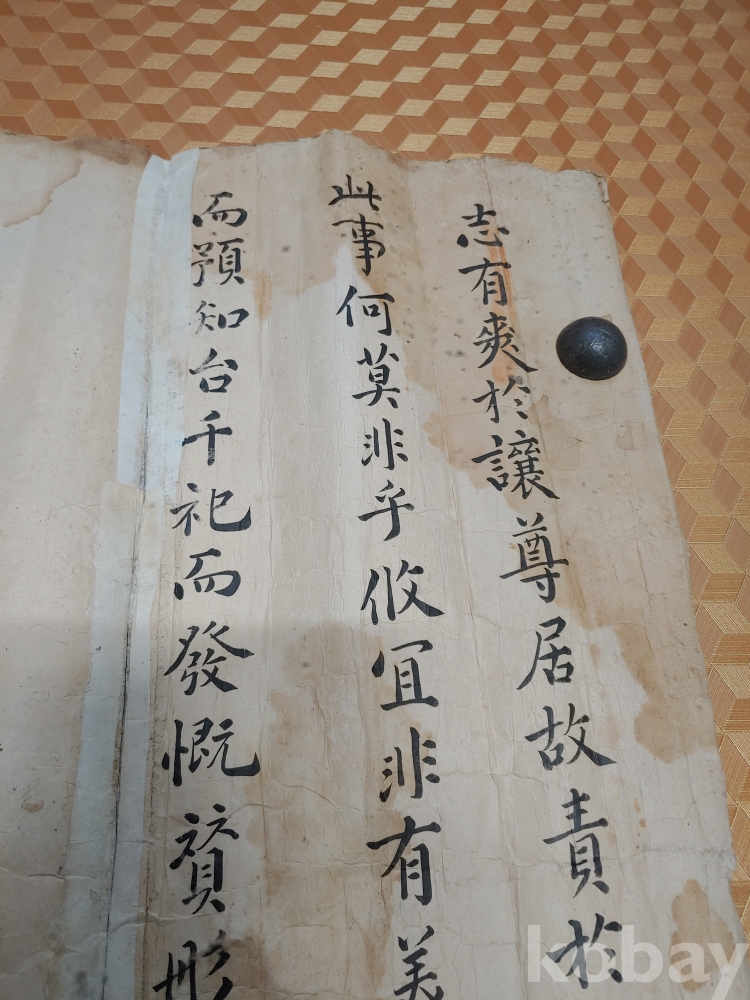 志有爽於讓尊居故責於
此事何莫非乎攸冝非有美
而預知台千祀而發慨賁形
kobay